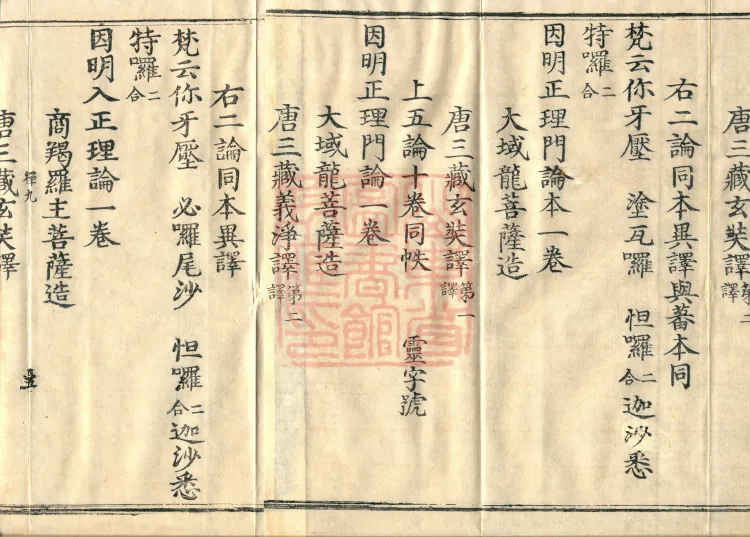 唐三藏玄奘譯第二譯
右二論同本異譯與蕃本同
梵云你牙壓 塗瓦囉 怛囉二合迦沙悉
特囉二合
因明正理門論本一卷
大域龍菩薩造
唐三藏玄奘譯第一譯
上五論十卷同帙 靈字號
因明正理門論一卷
大域龍菩薩造
唐三藏義淨譯第二譯
右二論同本異譯
梵云你牙壓 必囉尾沙 怛囉二合迦沙悉
特囉二合
因明入正理論一卷
商羯羅主菩薩造
唐三藏玄奘譯